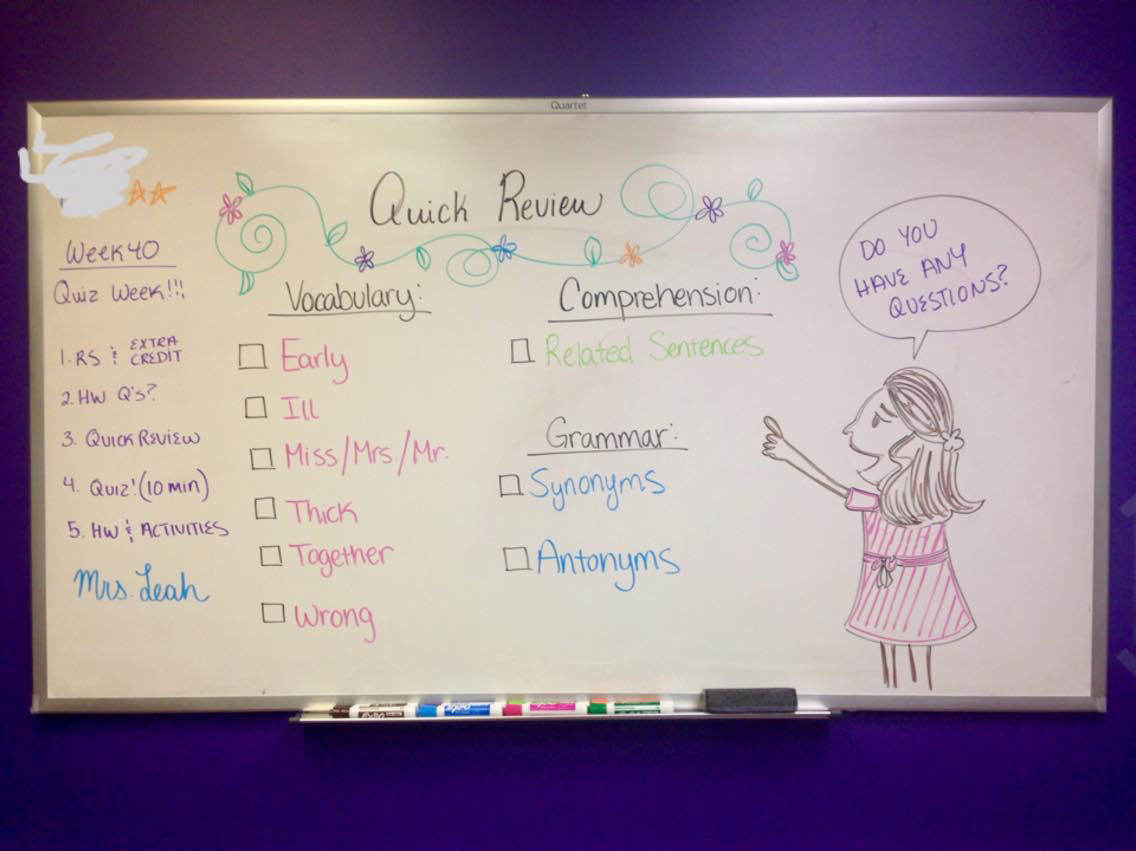 Quartet
Quick Review
Week 40
Quiz Week!!!
1. RS & EXTRA CREDIT
2. HW Q's?
3. Quick Review
4. Quiz! (10 min)
5. HW & Activities
Mrs. Leah
Vocabulary:
Early
Ill
Miss/Mrs./Mr.
Thick
Together
Wrong
Comprehension:
Related Sentences
Grammar:
Synonyms
Antonyms
DO YOU
HAVE ANY
QUESTIONS?